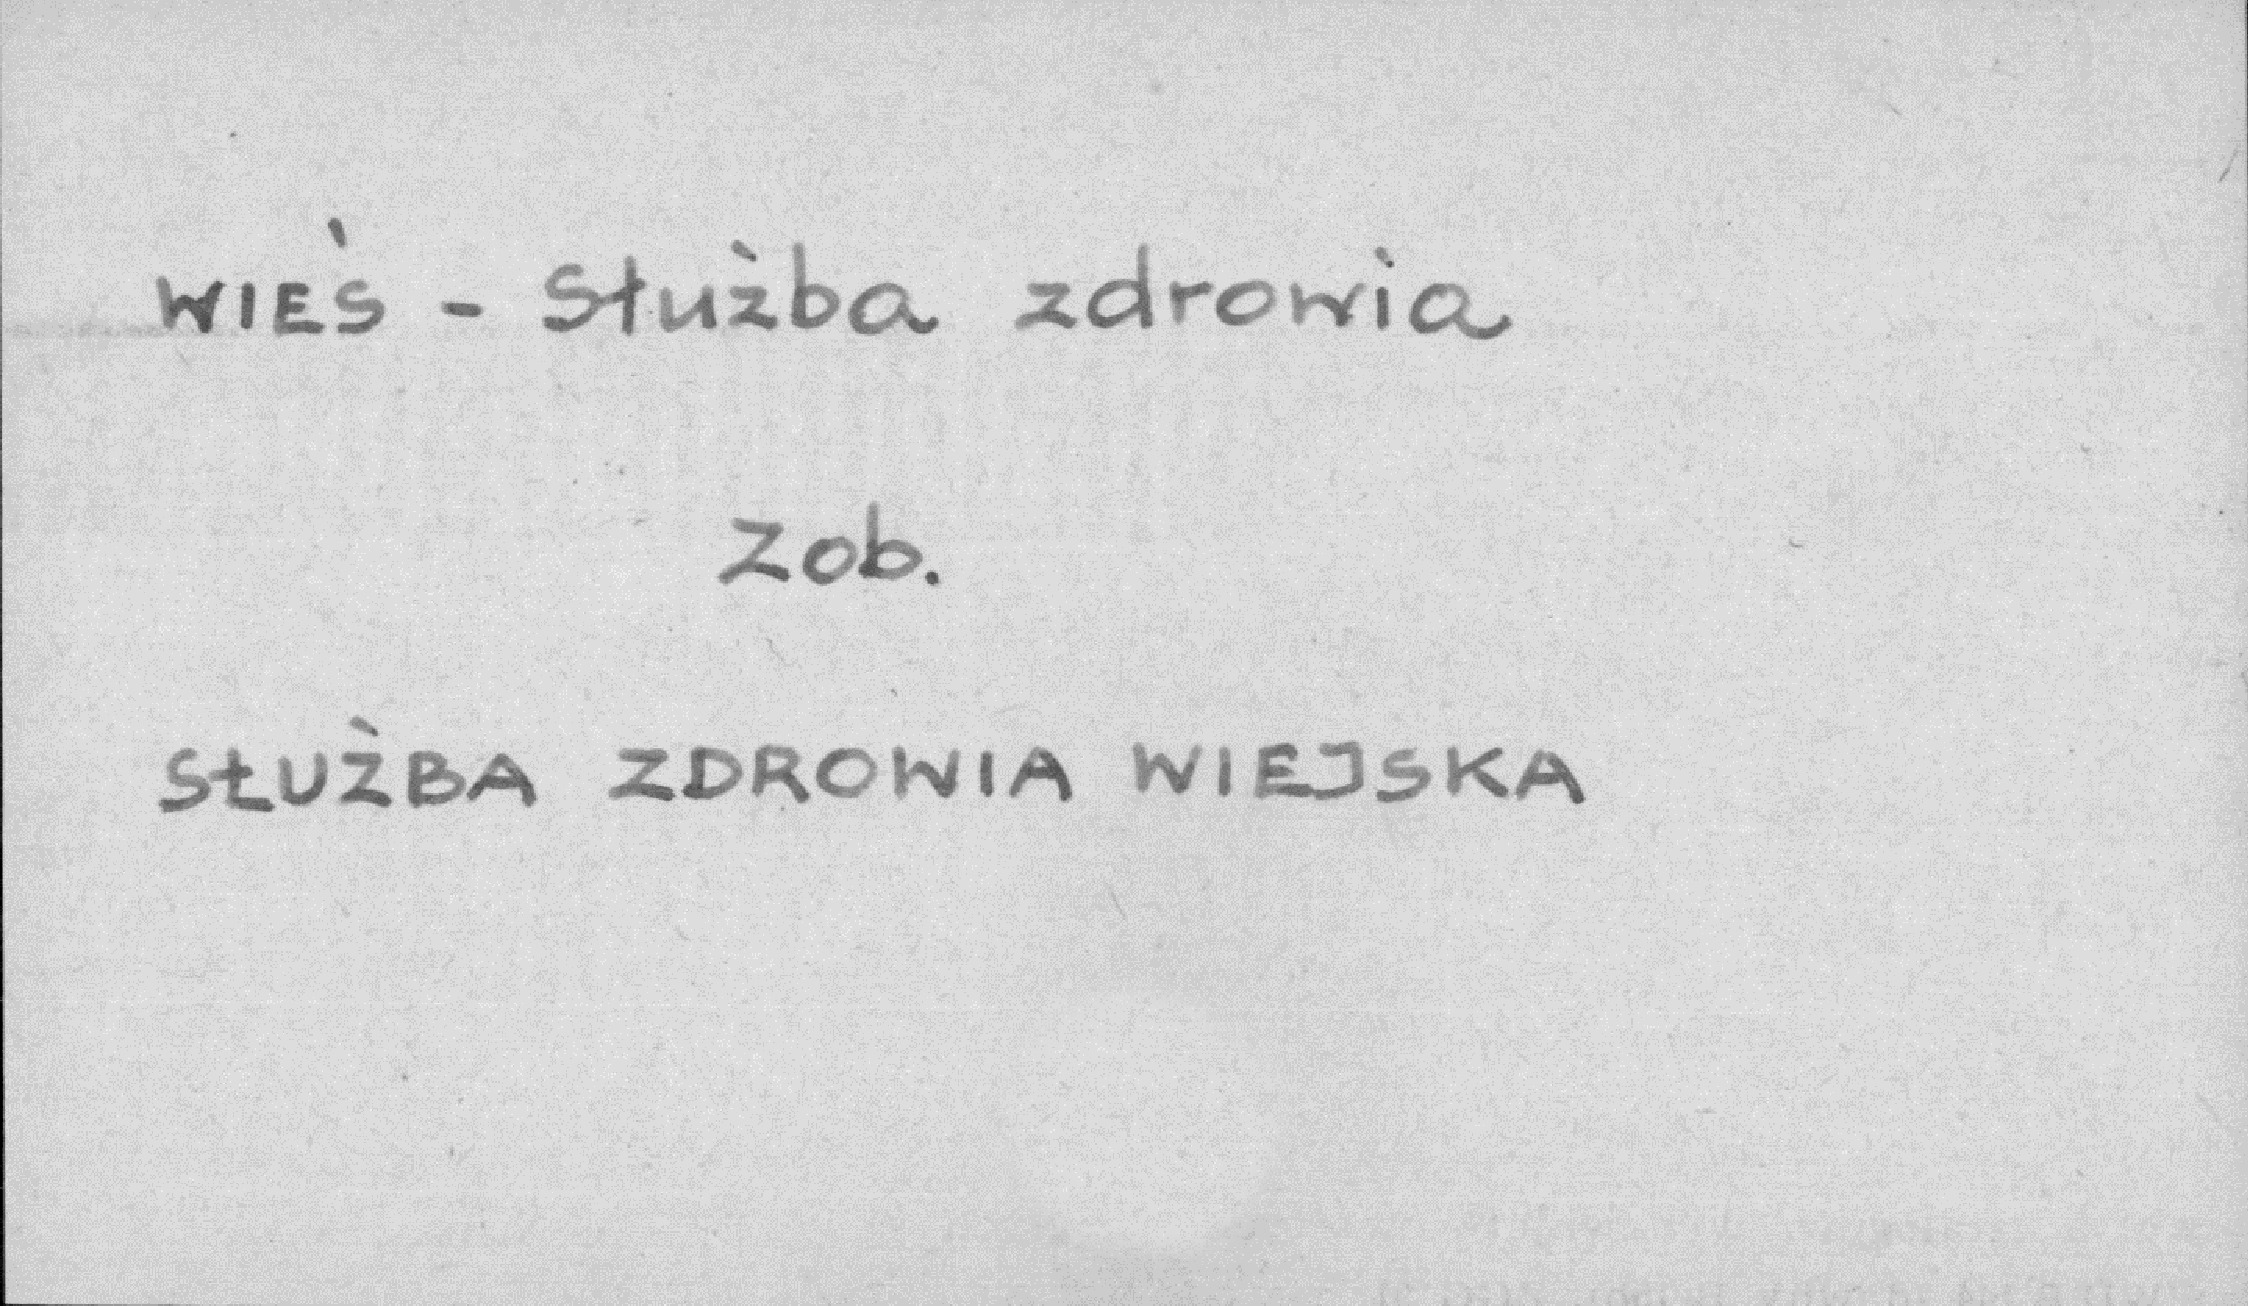 WIEŚ - Służba zdrowia
Zob.
SŁUŻBA ZDROWIA WIEJSKA